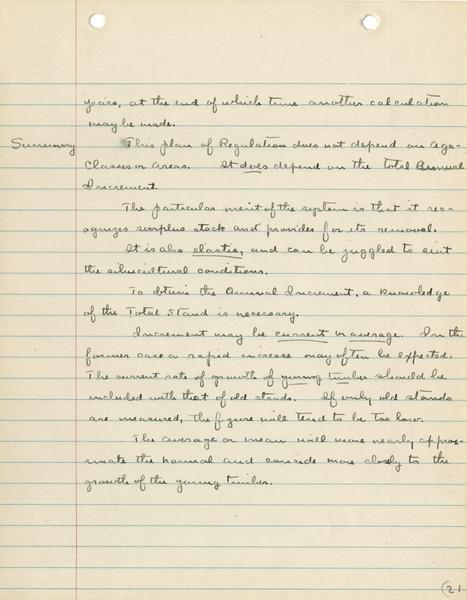 years, at the end of which time another calculation
may be made.
Summary This plan of Regulation does not depend on Age-
Classes or Areas. It does depend on the total Annual
Increment.
The particular merit of the system is that it rec-
ognizes surplus stock and provides for its removal.
It is also elastic, and can be juggled to suit
the silvicultural conditions.
To obtain the Annual Increment, a knowledge
of the Total Stand is necessary.
Increment may be current or average. In the
former case a rapid increase may often be expected.
The current rate of growth of young timber should be
included with that of old stands. If only old stands
are measured, the figure will tend to be too low.
The average or mean will more nearly approx-
imate the normal and coincide more closely to the
growth of the young timber.
21